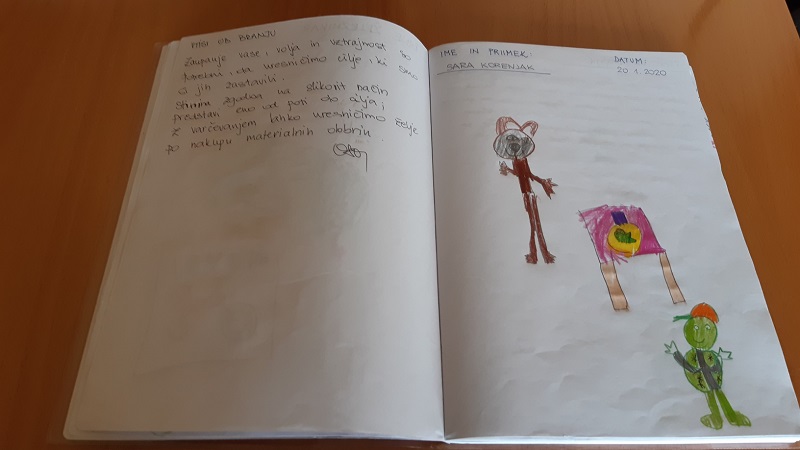 MISLI OB BRANJU
Zaupanje vase, volja in vztrajnost so
potrebni, da uresničimo cilje, ki smo
si jih zastavili.
zgodba na slikovit način
predstavi eno od poti do cilja,
z varčevanjem lahko uresničimo želje
po nakupu materialnih dobrin.
IME IN PRIIMEK:
SARA KORENJAK
DATUM:
20.1.2020